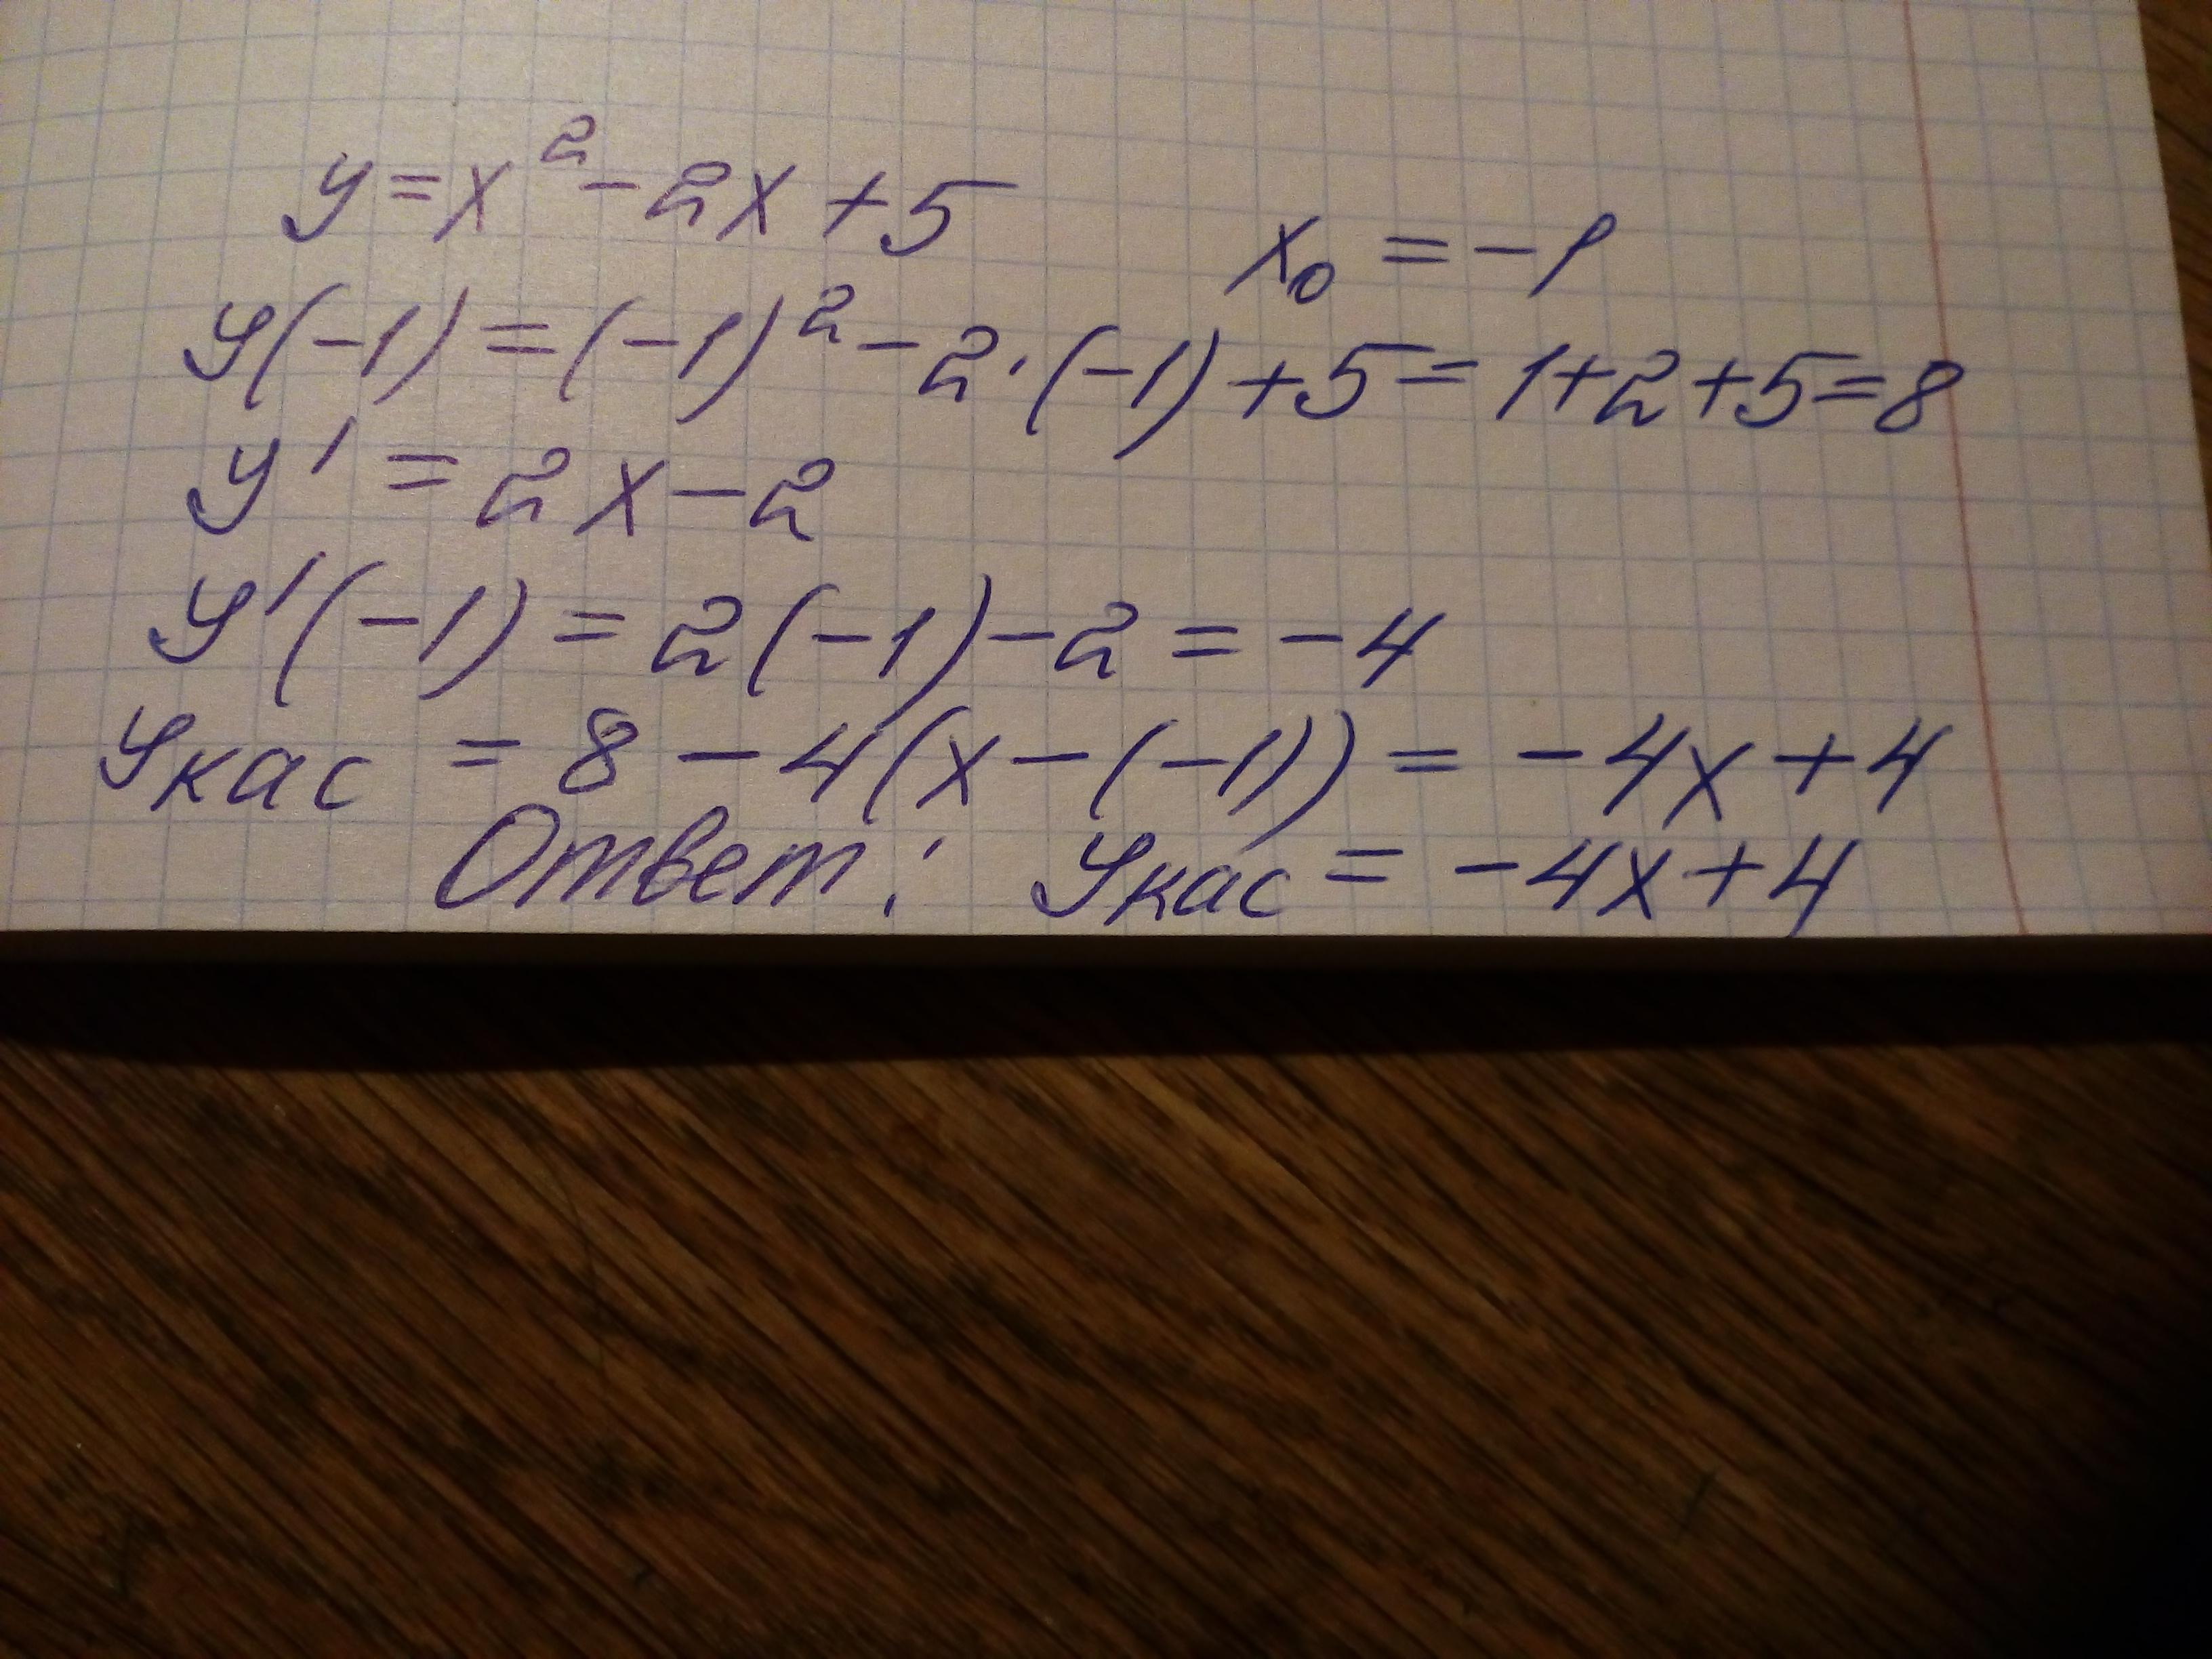 y = x² - 2x + 5 x₀ = -1
y(-1) = (-1)² - 2·(-1) + 5 = 1 + 2 + 5 = 8
y' = 2x - 2
y'(-1) = 2(-1) - 2 = -4
yкас = 8 - 4(x - (-1)) = -4x + 4
Ответ: yкас = -4x + 4